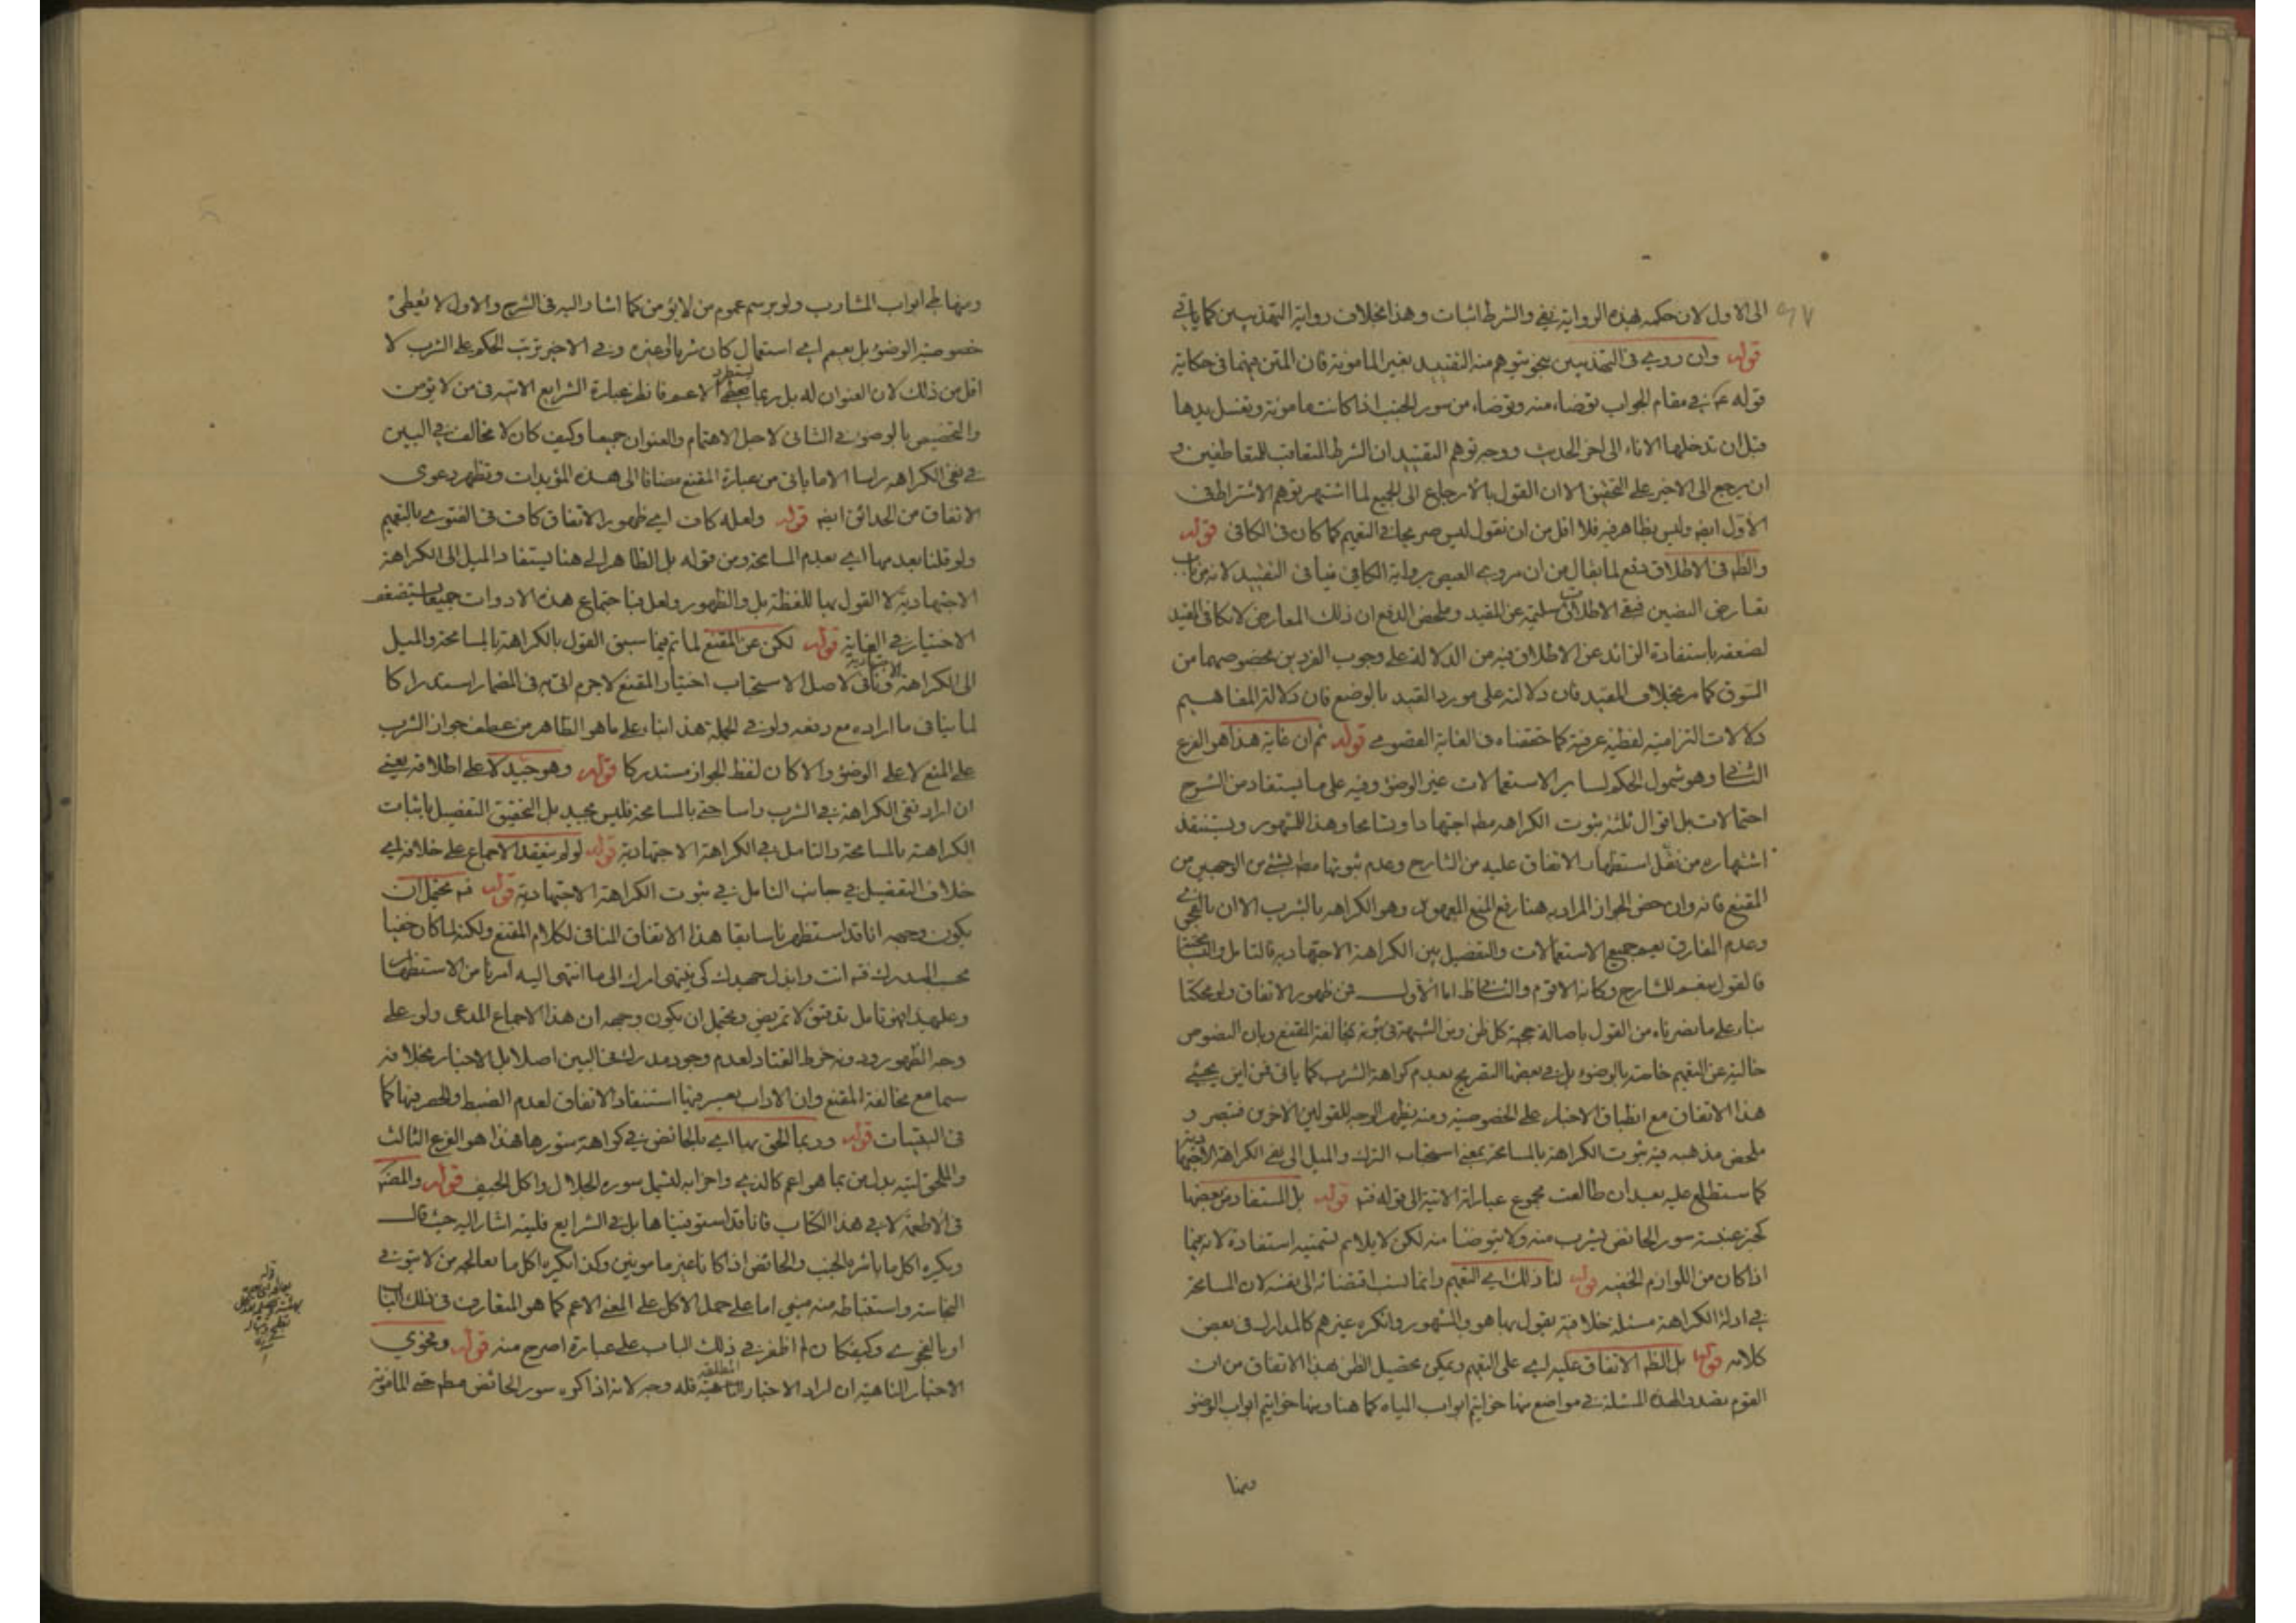 الى الاول لان حكمه بهذه الرواية نفي والشرط اثبات وهذا بخلاف رواية التهذيبين كما ياتي
قوله وان روي في التهذيبين بنحو يتوهم منه التقييد بغير المامونة فان المتن فيهما في حكاية
قوله في مقام الجواب توضاء منه وتوضاء من سور الجنب اذا كانت مامونة وتغسل يدها
قبل ان تدخلها الاناء الى اخر الحديث ووجه توهم التقييد ان الشرط المتعاقب للمتعاطفين و
ان يرجع الى الاخير على التحقيق الا ان القول بالارجاع الى الجميع لما اشتهر توهم الاشتراط في
الاول ايضا وليس بظاهر فيه فلا اقل من ان نقول ليس صريحا في التعميم كما كان في الكافي قوله
والظ في الاطلاق دفع لما يقال من ان مروي العيص برواية الكافي ينافي التقييد لانه من باب
تعارض النصين فبقي الاطلاقات سليمة عن المقيد وملخص الدفع ان ذلك المعارض لا يكافئ المقيد
لضعفه باستفادة الزائد عن الاطلاق فيه من الدلالة على وجوب الفردين بخصوصهما من
السوق كما مر بخلاف المقيد فان دلالته على مورد القيد بالوضع فان دلالة المفاهيم
دلالات التزامية لفظية عرفية كما حققناه في الغاية القصوى قوله ثم ان غاية هذا هو الفرع
الثاني وهو شمول الحكم لساير الاستعمالات غير الوضوء وفيه على ما يستفاد من الشرح
احتمالات بل اقوال ثلثة ثبوت الكراهة مط اجتهادا وتسامحا وهذا المشهور ويستنقذ
اشتهاره من نقل استظهار الاتفاق عليه من الشارح وعدم ثبوتها مط بشئ من الوجهين من
المقنع فانه وان خص الجواز المراد به هنا رفع المنع المعهود وهو الكراهة بالشرب الا ان بالفحوى
وعدم الفارق يعم جميع الاستعمالات والتفصيل بين الكراهة الاجتهادية فالتامل
فالقول بنعم للشارح وكانه الاقوم والثاني اما الاول فمن ظهور الاتفاق ولو محكيا
بناء على ما نصرناه من القول باصالة حجية كل ظن ومن الشبهة في ثبوته بمخالفة المقنع وبان النصوص
خالية عن التعميم خاصة بالوضوء بل في بعضها التصريح بعدم كراهة الشرب كما ياتي فمن اين يجيئ
هذا الاتفاق مع انطباق الاخبار على الخصوصية ومنه يظهر الوجه للقولين الاخرين فتبصر و
ملخص مذهبه فيه ثبوت الكراهة بالمسامحة بمعنى استحباب الترك والميل الى نفي الكراهة الاجتهادية
كما ستطلع عليه بعد ان طالعت مجموع عباراته الاتية الى قوله فتم قوله بل المستفاد من بعضها
كخبر عنبسة سور الحائض يشرب منه ولا يتوضا منه لكن لا يلائم تسميته استفادة لانه فيما
اذا كان من اللوازم الخفية قوله لنا ذلك اي التعميم وانما نسب اقتضائه الى نفسه لان المسامحة
في ادلة الكراهة مسئلة خلافية يقول بها هو والمشهور وانكره غيرهم كالمدارك في بعض
كلامه قوله بل الظ الاتفاق عليه اي على التعميم ويمكن تحصيل الظن بهذا الاتفاق من ان
القوم تصدوا لهذه المسئلة في مواضع منها خواتيم ابواب المياه كما هنا ومنها خواتيم ابواب الوضوء
ومنها
ومنها في ابواب المشارب ولو برسم عموم من لا يؤمن كما اشار اليه في الشرح والاول لا تعطي
خصوصية الوضوء بل يعم اي استعمال كان شربا او غيره وفي الاخير ترتب الحكم على الشرب لا
اقل من ذلك لان العنوان له بل ربما الاعم فانظر عبارة الشرايع الاتية في من لا يؤمن
والتخصيص بالوضوء في الثاني لاجل الاهتمام والعنوان جميعا وكيف كان لا مخالف في البين
في نفي الكراهة راسا الا ما ياتي من عبارة المقنع مضافا الى هذه المؤيدات وتظهر دعوى
الاتفاق من الحدائق ايضا قوله ولعله كاف اي ظهور الاتفاق كاف في الفتوى بالتعميم
ولو قلنا بعدمها اي بعدم المسامحة ومن قوله بل الظاهر الى هنا يستفاد الميل الى الكراهة
الاجتهادية لا القول بها للفظة بل والظهور ولعل فباجتماع هذه الادوات جميعا يستضعف
الاختيار في الغاية قوله لكن عن المقنع لما تم فيما سبق القول بالكراهة بالمسامحة والميل
الى الكراهة الاجتهادية وثاني لاصل الاستحباب اختيار المقنع لاجرم اتى به في المضمار استدراكا
لما ينافي ما اراده مع دفعه ولو في الجملة هذا بناء على ما هو الظاهر من عطف جواز الشرب
على المنع لا على الوضوء والا كان لفظ الجواز مستدركا قوله وهو جيد لا على اطلاقه يعني
ان اراد نفي الكراهة في الشرب راسا حتى بالمسامحة فليس بجيد بل التحقيق التفصيل باثبات
الكراهة بالمسامحة والتامل في الكراهة الاجتهادية قوله لو لم ينعقد الاجماع على خلافه اي
خلاف التفصيل في جانب التامل في ثبوت الكراهة الاجتهادية قوله فتم يحتمل ان
يكون وجهه انا قد استظهرنا سابقا هذا الاتفاق المنافي لكلام المقنع ولكنه لما كان خفيا
بحسب المدرك فتم انت وابذل جهدك كي ينتهي امرك الى ما انتهى اليه امرنا من الاستظهار
وعليه فهو تامل تدقيق لا تمريض ويحتمل ان يكون وجهه ان هذا الاجماع المدعى ولو على
وجه الظهور ودونه خرط القتاد لعدم وجود مدرك في البين اصلا بل الاخبار بخلافه
سيما مع مخالفة المقنع وان الاداب يعسر فيها استنفاد الاتفاق لعدم الضبط والحصر فيها كما
في البقيات قوله وربما الحق بها اي بالحائض في كراهة سورها هذا هو الفرع الثالث
والملحق اثنين بدل من بما هو اعم كالذي واحزابه لتشمل سوره الجلال واكل الجيف قوله والمصنف
في الاطعمة لا في هذا الكتاب فانا قد استوفيناها بل في الشرايع فلينه اشار اليه حيث قال
ويكره اكل ما باشره الجنب والحائض اذا كانا غير مامونين وكذا يكره اكل ما يعالجه من لا يتوقى
النجاسة واستنباطه منه مبني اما على حمل الاكل على المعنى الاعم كما هو المتعارف في ذلك الباب
او بالفحوى وكيف كان لم اظفر في ذلك الباب على عبارة اصرح منه قوله وفحوى
الاخبار الناهية ان اراد الاخبار الناهية المطلقة فله وجه لانه اذا كره سور الحائض مط حتى المامونة